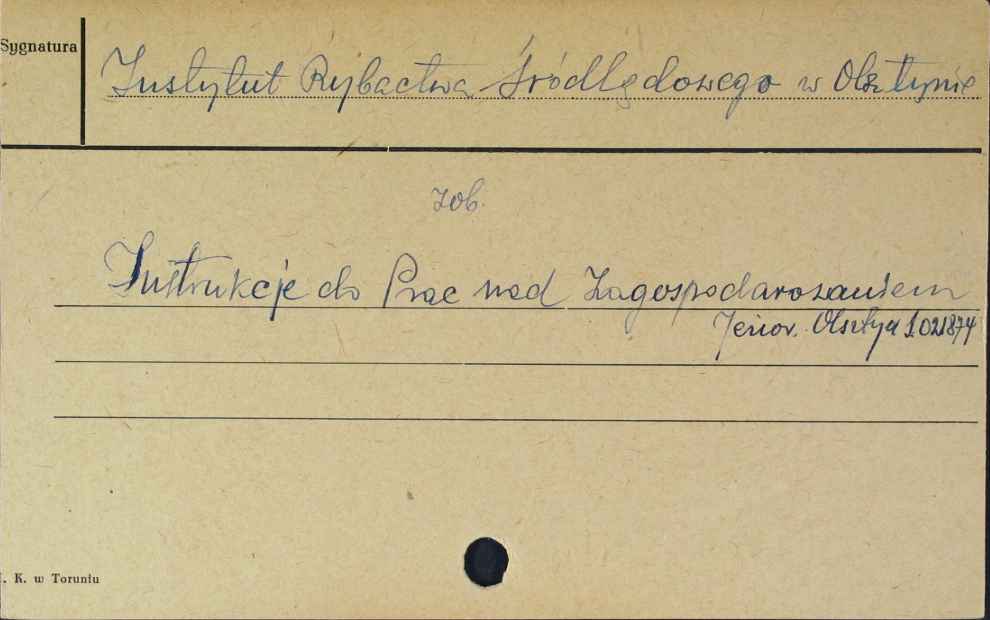 Sygnatura
Instytut Rybactwa Śródlądowego w Olsztynie
zob.
Instrukcje do Prac nad Zagospodarowaniem
Jezior. Olsztyn
K. w Toruniu